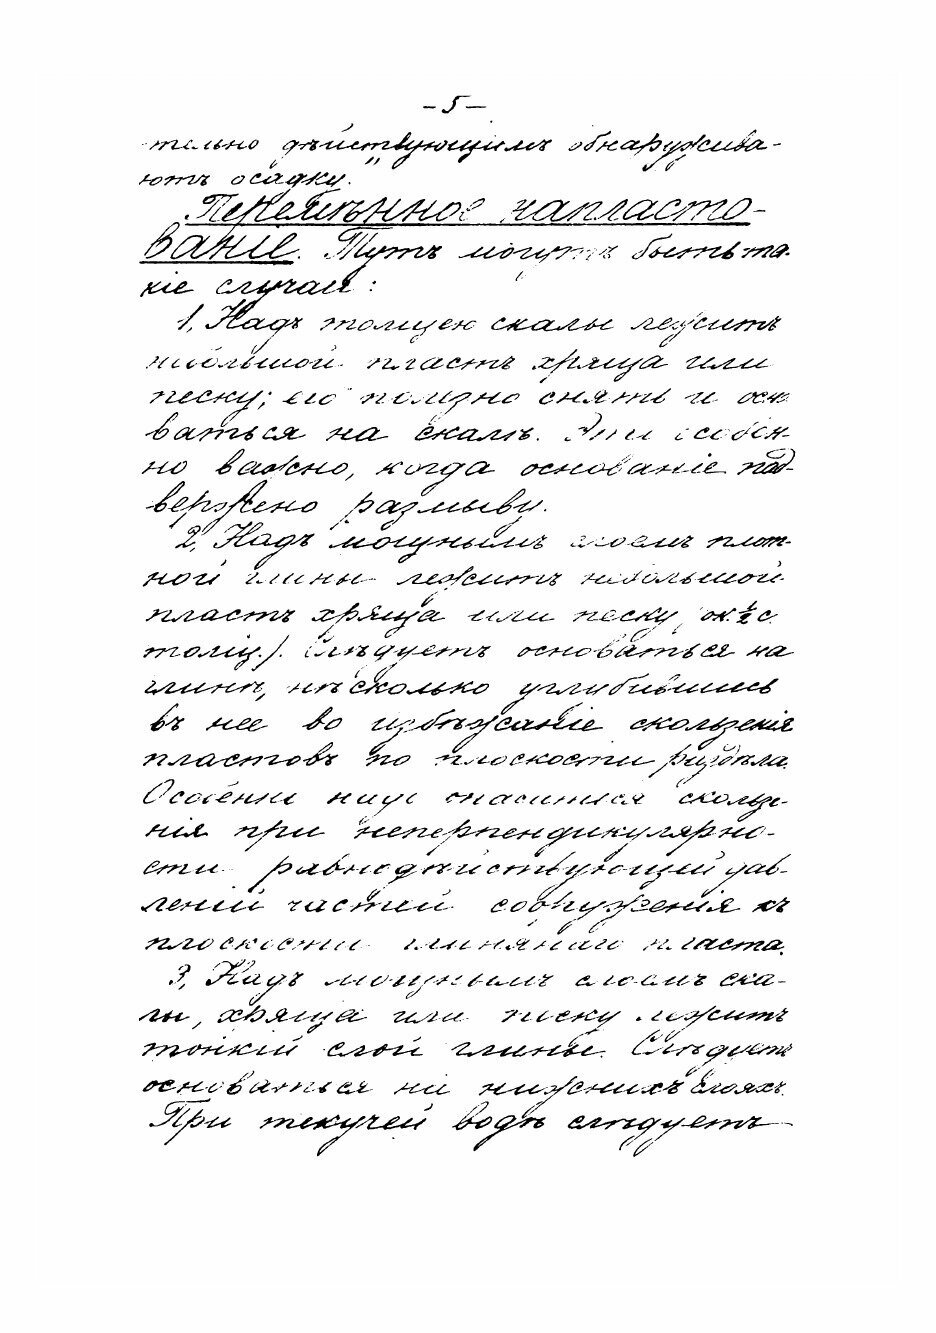 – 5 –
тельно дѣйствующимъ обнаружива-
ютъ осадку."
Перемѣнное напласто-
ваніе. Тутъ могутъ быть та-
кіе случаи:
1, Надъ толщею скалы лежитъ
небольшой пластъ хряща или
песку; его полезно снять и осно-
ваться на скалѣ. Это особен-
но важно, когда основаніе под-
вержено размыву.
2, Надъ мощнымъ слоемъ плот-
ной глины лежитъ небольшой
пластъ хряща или песку (ок. ½ с.
толщ.). Слѣдуетъ основаться на
глинѣ, нѣсколько углубившись
въ нее во избѣжаніе скольженія
пластовъ по плоскости раздѣла.
Особенно надо опасаться скольже-
нія при неперпендикулярно-
сти равнодѣйствующей дав-
леній частей сооруженія къ
плоскости глинянаго пласта.
3, Надъ мощнымъ слоемъ ска-
лы, хряща или песку лежитъ
тонкій слой глины. Слѣдуетъ
основаться на нижнихъ слояхъ.
При текучей водѣ слѣдуетъ